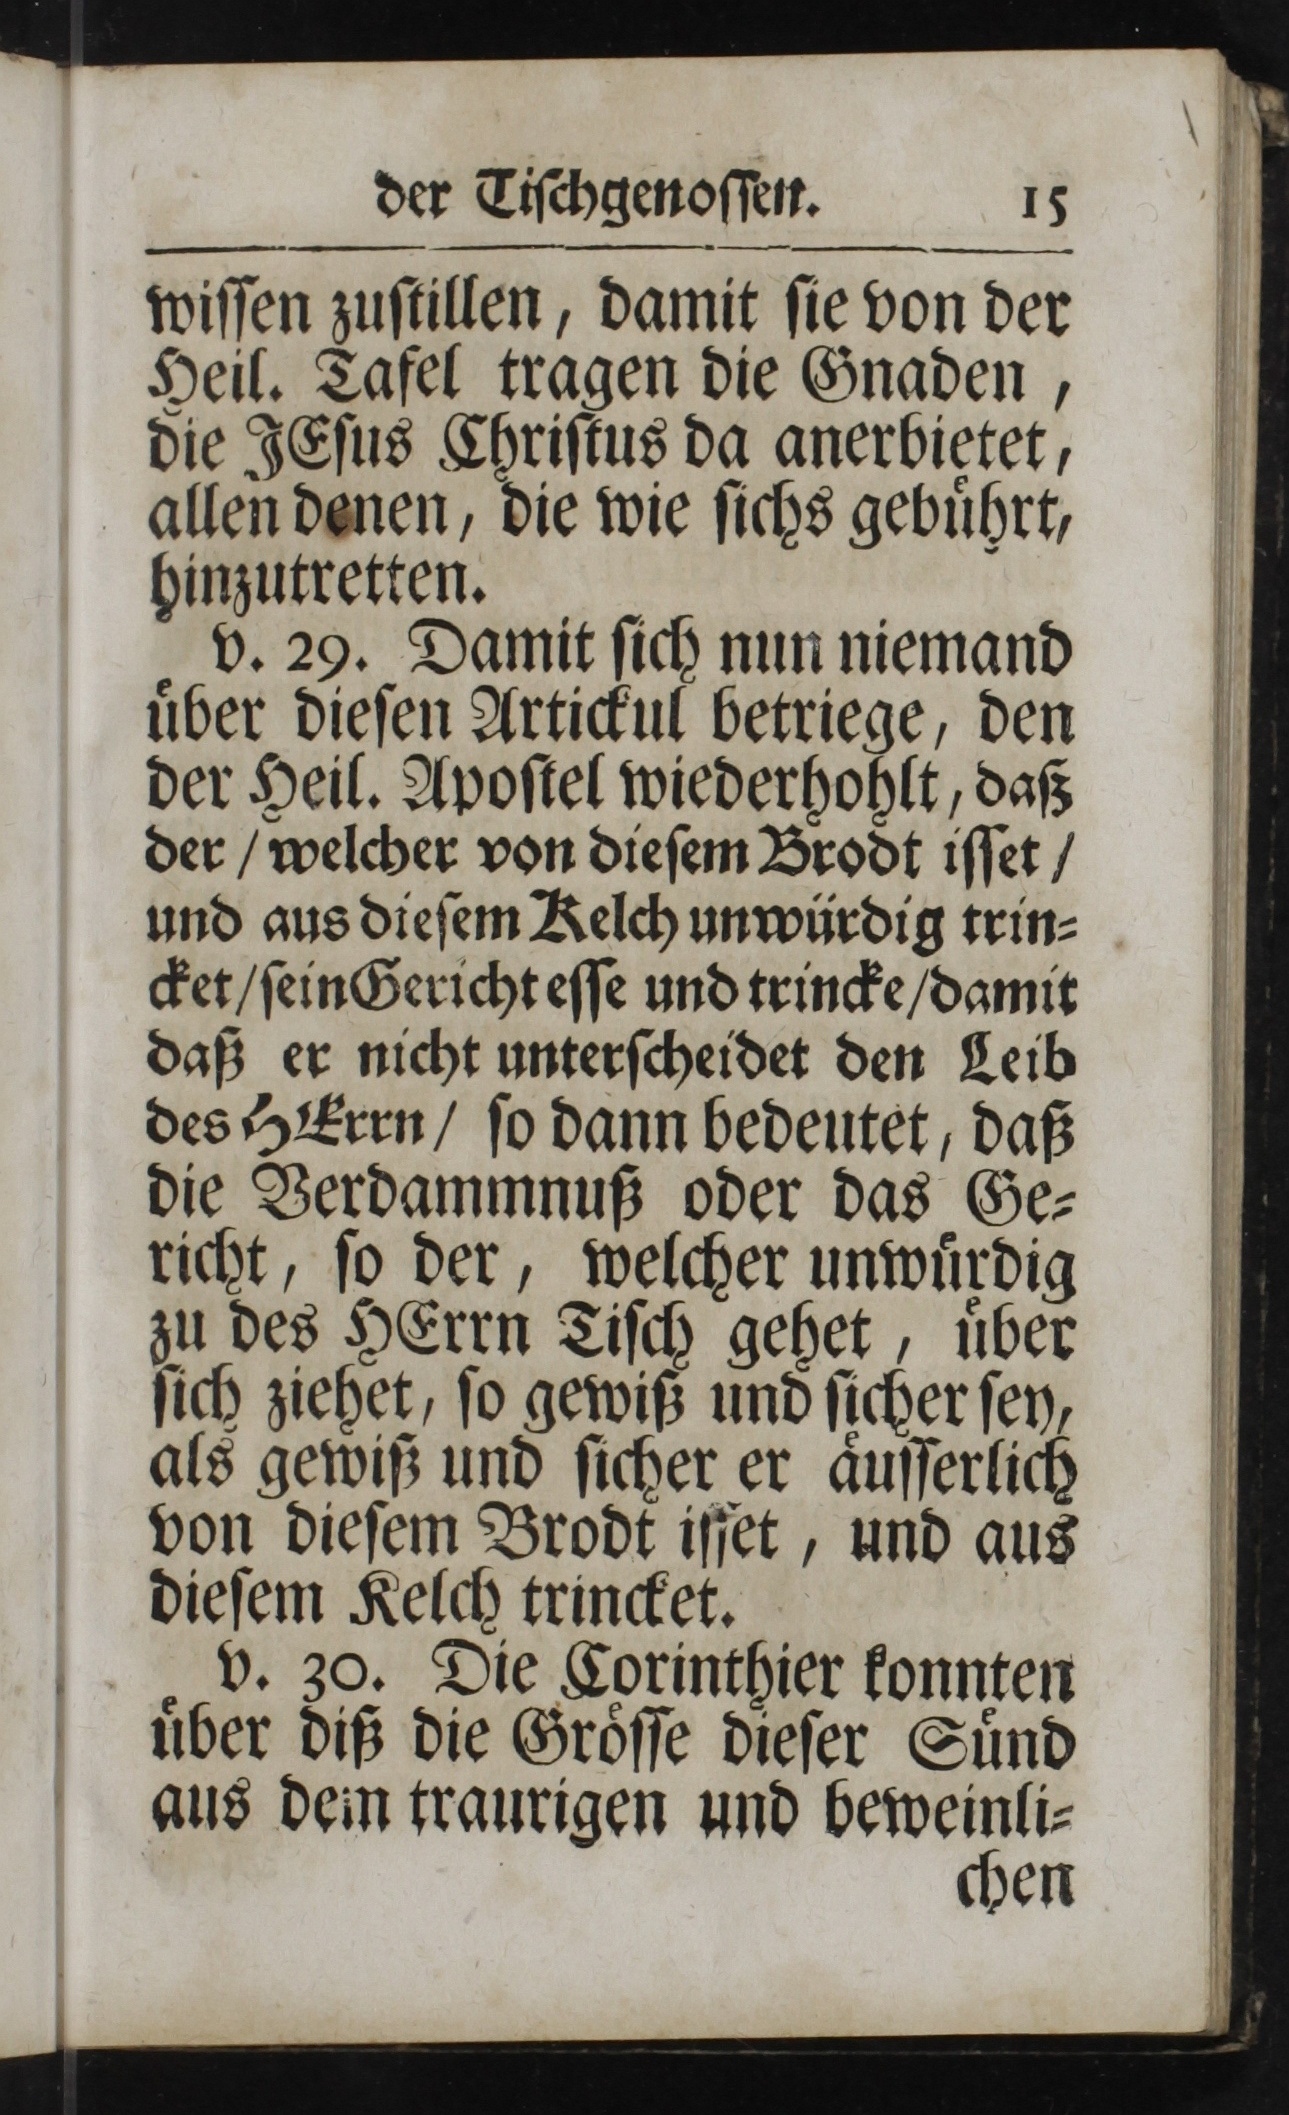 der Tischgenossen. 15
wissen zustillen, damit sie von der
Heil. Tafel tragen die Gnaden,
die JEsus Christus da anerbietet,
allen denen, die wie sichs gebührt,
hinzutretten.
v. 29. Damit sich nun niemand
über diesen Artickul betriege, den
der Heil. Apostel wiederhohlt, daß
der / welcher von diesem Brodt isset /
und aus diesem Kelch unwürdig trin-
cket / sein Gericht esse und trincke / damit
daß er nicht unterscheidet den Leib
des HErrn / so dann bedeutet, daß
die Verdammnuß oder das Ge-
richt, so der, welcher unwürdig
zu des HErrn Tisch gehet, über
sich ziehet, so gewiß und sicher sey,
als gewiß und sicher er äusserlich
von diesem Brodt isset, und aus
diesem Kelch trincket.
v. 30. Die Corinthier konnten
über diß die Grösse dieser Sünd
aus dem traurigen und beweinli-
chen